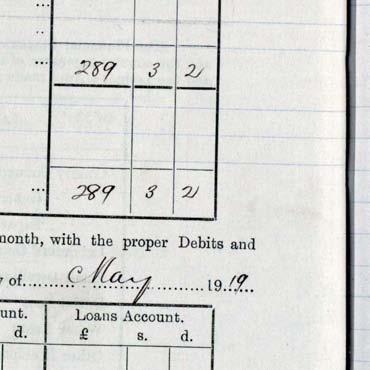 ... 289 3 2
... 289 3 2
month, with the proper Debits and
y of........May........1919.
unt. Loans Account.
d. £ s. d.